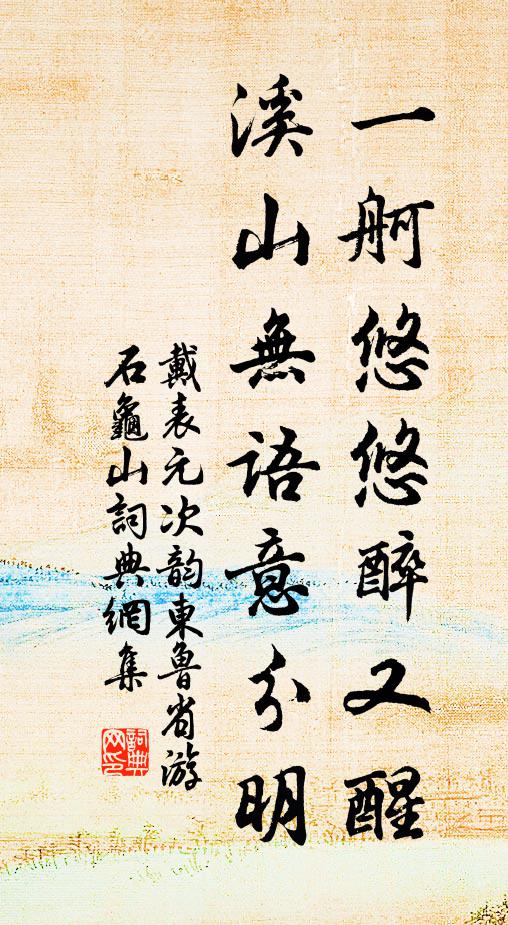 一舸悠悠醉又醒
溪山無語意分明
戴表元次韵東魯省游
石龜山詞典網集
詞典網印